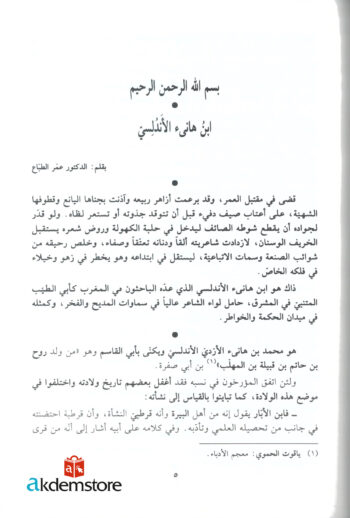 بسم الله الرحمن الرحيم
ابنُ هانىء الأَندُلِسيّ
بقلم: الدكتور عمَر الطبّاع
قضى في مقتبل العمر، وقد برعمت أزاهر ربيعه وآذنت بجناها اليانع وقطوفها
الشهيّة، على أعتاب صيف دفيء قبل أن تتوقد جذوته أو تستعمر لظاه. ولو قدّر
لجواده أن يقطع شوطه الصائف ليدخل في حلبة الكهولة وروض شعره يستقبل
الخريف الوسنان، لازدادت شاعريته ألقاً ودنانه تعتقاً وصفاء، وخلص رحيقه من
شوائب الصنعة وسمات الاتباعيّة، ليستقل في ابتداعه وهو يخطر في زهو وخيلاء
في فلكه الخاصّ.
ذاك هو ابن هانىء الأندلسي الذي عدّه الباحثون في المغرب كأبي الطيّب
المتنبيّ في المشرق، حامل لواء الشاعر عالياً في سماوات المديح والفخر، وكمثله
في ميدان الحكمة والخواطر.
هو محمد بن هانىء الأزديّ الأندلسيّ ويكنّى بأبي القاسم وهو «من ولد روح
بن حاتم بن قبيلة بن المهلّب»(١) بن أبي صفرة.
ولئن اتفق المؤرخون في نسبه فقد أغفل بعضهم تاريخ ولادته واختلفوا في
موضع هذه الولادة، كما تباينوا بالقياس إلى نشأته:
ـ فابن الأبّار يقول إنه من أهل البيرة وأنه قرطبيّ النشأة، وأن قرطبة احتضنته
في جانب من تحصيله العلمي وتأدّبه. وفي كلامه على أبيه أشار إلى أنّه من قرى
(١) ياقوت الحموي: معجم الأدباء.
٥
akdemstore